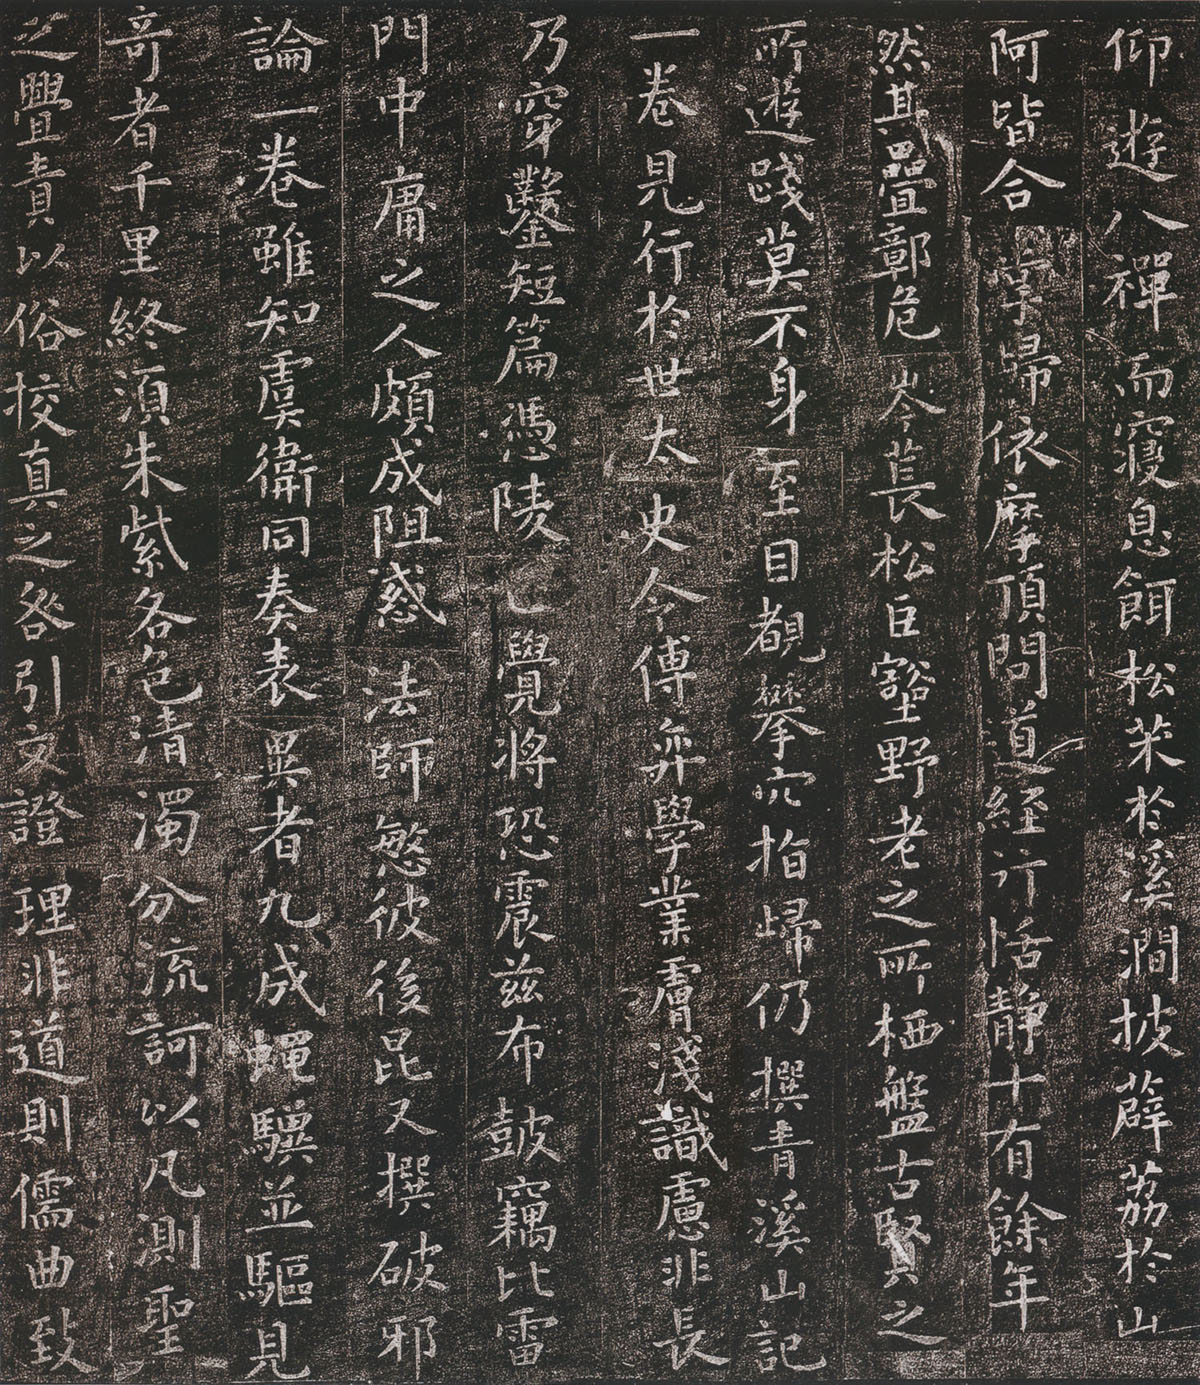 仰遊八禪而寢息餌松茱於溪澗披薜荔於山
阿皆合掌歸依摩頂問道経行恬靜十有餘年
然其疊鄣危岑萇松巨壑野老之所栖盤古賢之
所遊踐莫不身至目覩攀穴指歸仍撰青溪山記
一卷見行於世太史令傅弈學業膚淺識慮非長
乃穿鑿短篇憑陵正覺將恐震茲布皷竊比雷
門中庸之人頗成阻惑法師慜彼後昆又撰破邪
論一卷雖知虞衛同奏表異者九成蝿驥並驅見
奇者千里終湏朱紫各色清濁分流訶以凡測聖
之舋責以俗校真之咎引文證理非道則儒曲致